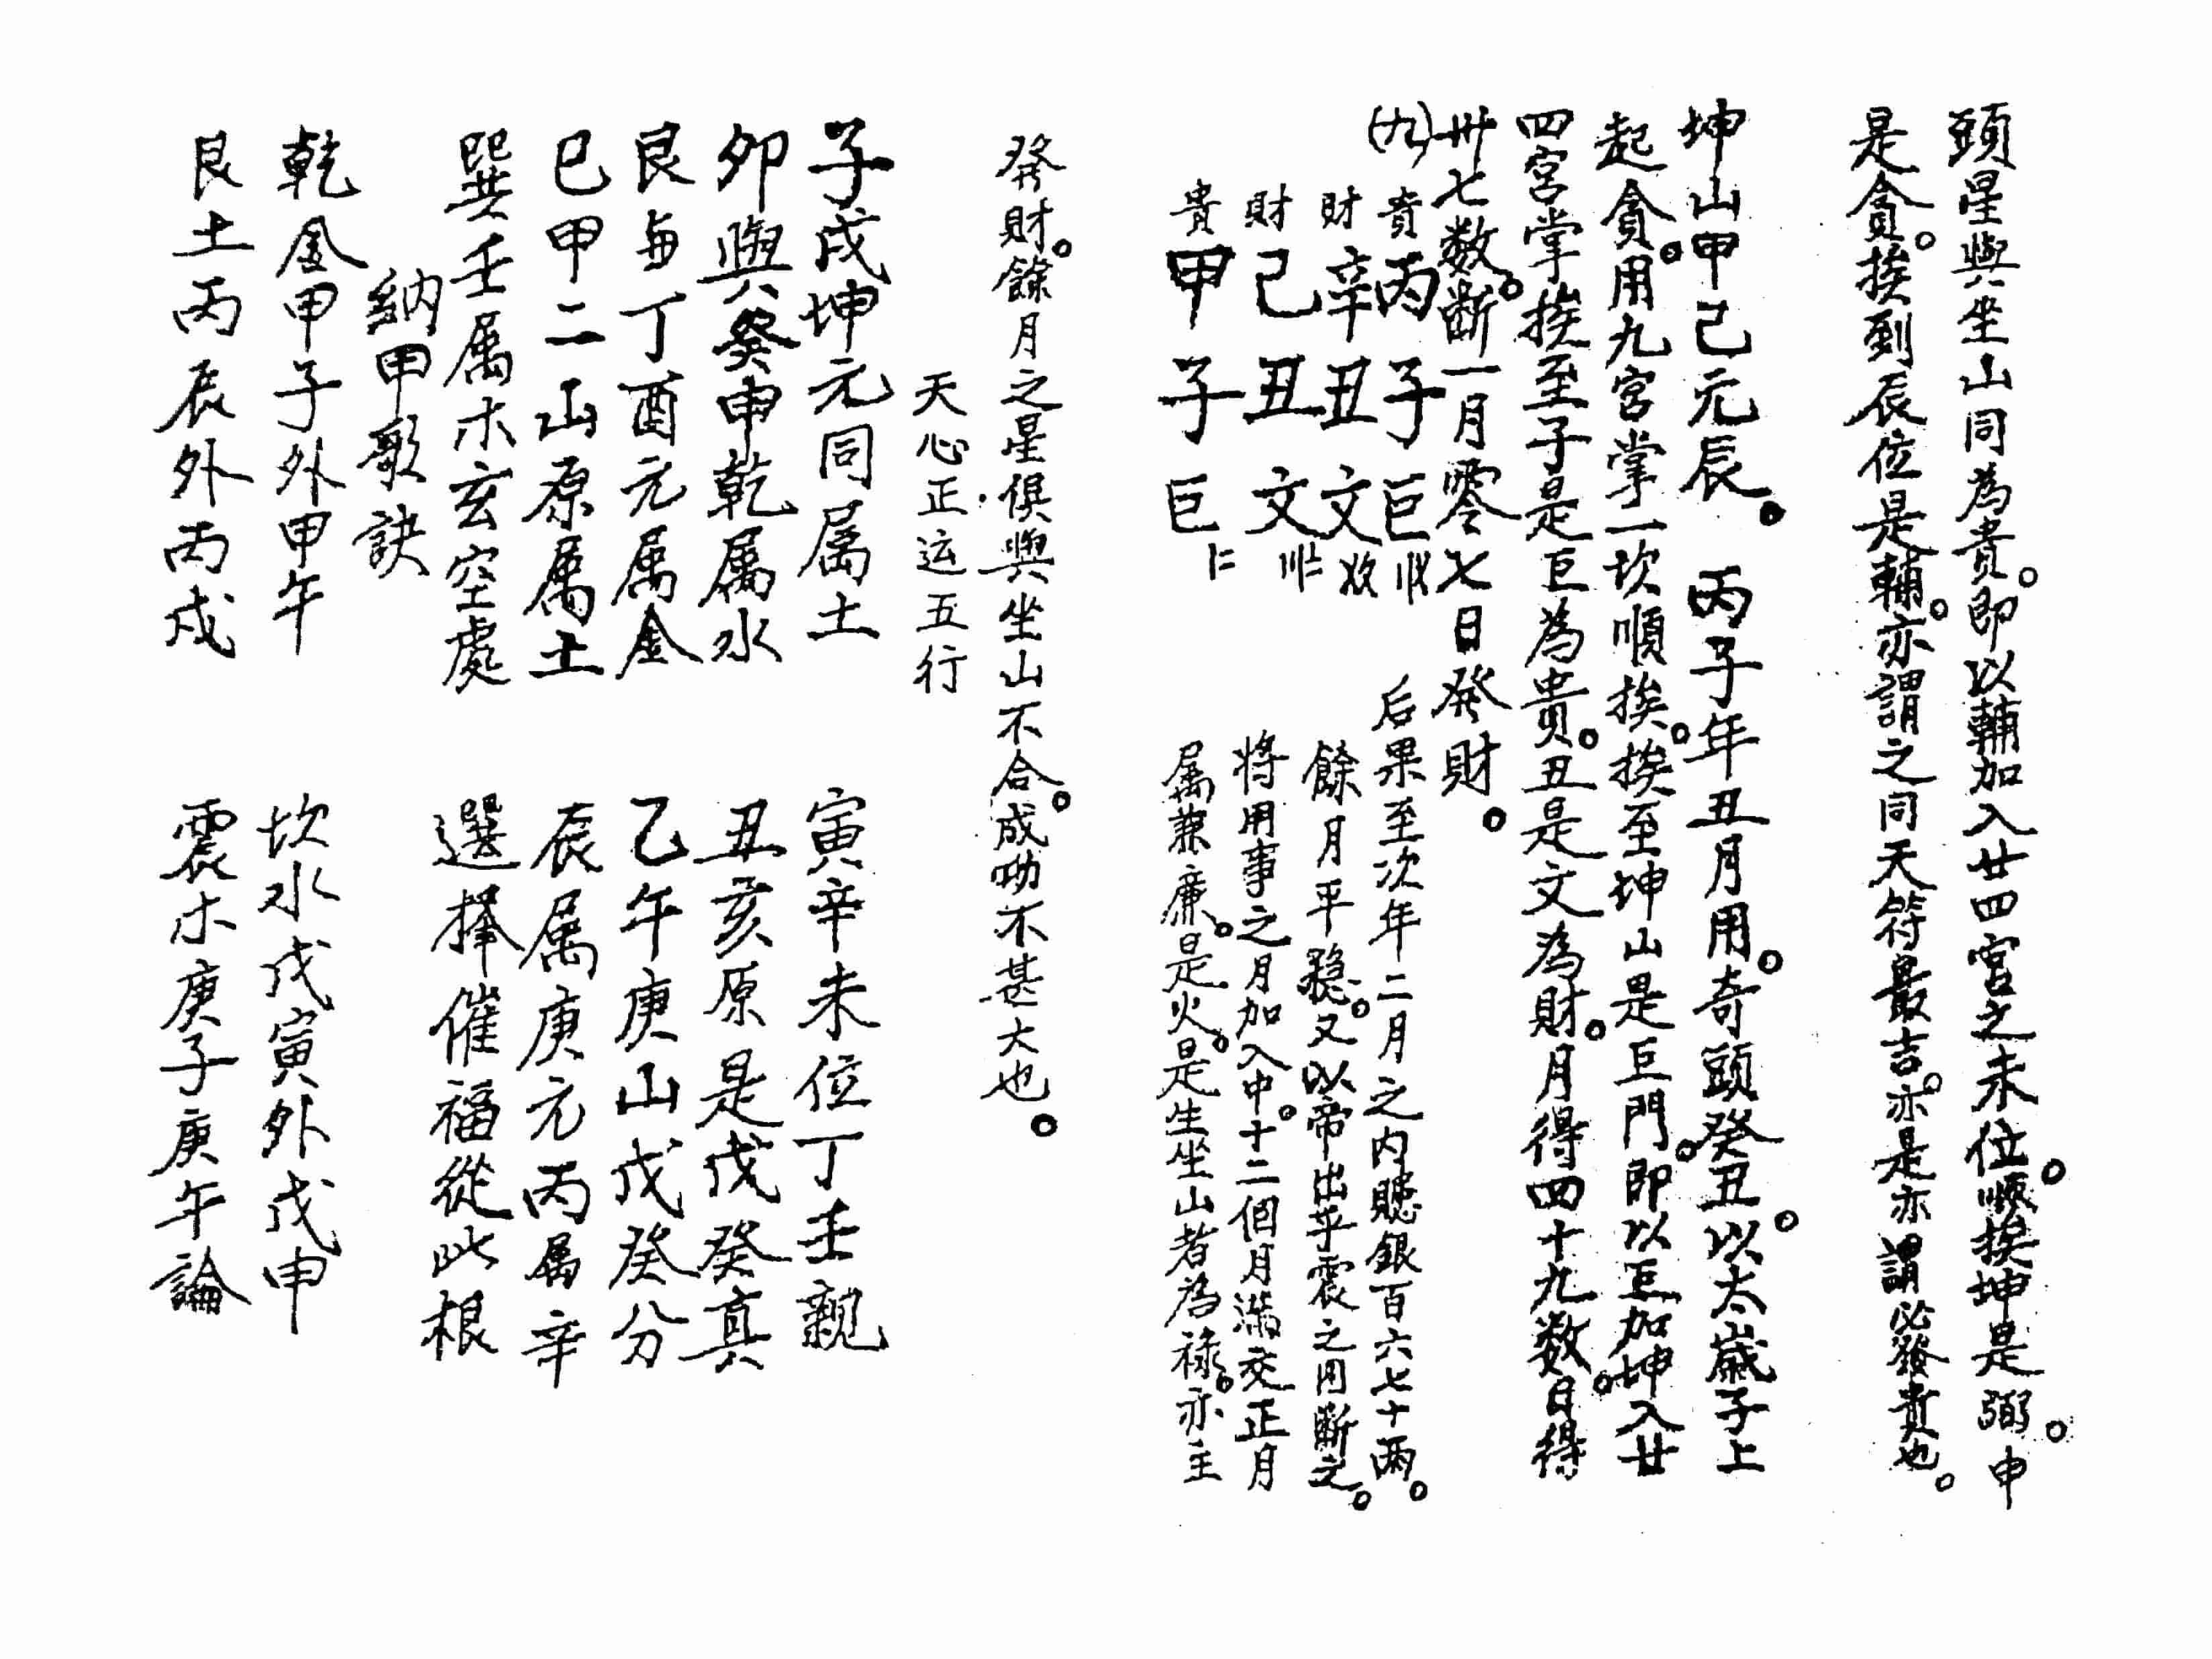 頭星與坐山同為貴。即以輔加入廿四宮之未位。順挨坤是弼。申
是貪。挨到辰位是輔。亦謂之同天符最吉。亦是亦謂必發貴也。
坤山甲己元辰。丙子年丑月用。奇頭癸丑。以太歲子上
起貪。用九宮掌一坎順挨。挨至坤山是巨門。即以巨加坤入廿
四宮掌挨至子是巨為貴。丑是文為財。月得四十九数。日得
卅七数。断一月零七日発財。
(九)
貴 丙子 巨
財 辛丑 文
財 己丑 文
貴 甲子 巨
后果至次年二月之内賭銀百六七十両。
餘月平穏。又以帝出乎震之月断之。
將用事之月加入中。十二個月滿交正月
属兼廉。是火。是生坐山者為禄。亦主
発財。餘月之星俱與坐山不合。成功不甚大也。
天心正运五行
子戌坤元同属土 寅辛未位丁壬親
卯與癸申乾属水 丑亥原是戊癸真
艮与丁酉元属金 乙午庚山戊癸分
巳甲二山原属土 辰属庚元丙属辛
巽壬属木玄空處 選擇催福從此根
納甲歌訣
乾金甲子外甲午 坎水戊寅外戊申
艮土丙辰外丙戍 震木庚子庚午論